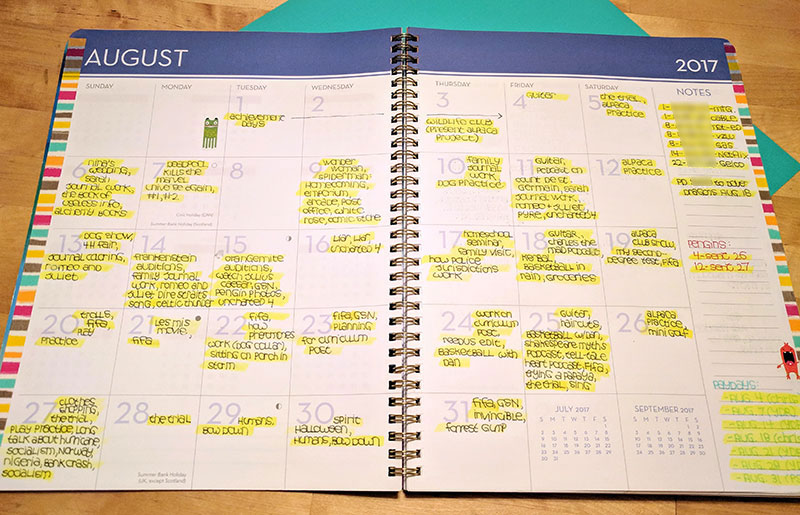 AUGUST
2017
SUNDAY MONDAY TUESDAY WEDNESDAY THURSDAY FRIDAY SATURDAY NOTES
1
achievement
days
2
3
wildlife club
(present alpaca
project)
4
guitar
5
the trial,
alpaca
practice
6
nina's
wedding,
sarah
journal work,
the book of
useless info,
alchemy books
7
deadpool
kills the
marvel
universe again,
#1, #2
Civic Holiday (CAN)
Summer Bank Holiday (Scotland)
8
9
wonder
woman,
spiderman
homecoming,
emporium,
arcade, post
office, white
rose, comic store
10
family
journal
work
dog practice
11
guitar,
podcast on
count de st
germain, sarah
journal work,
romeo + juliet,
pyre, uncharted 4
12
alpaca
practice
13
dog show,
4H fair,
journal coloring,
romeo and
juliet
14
frankenstein
auditions,
family journal
work, romeo and
juliet, dire straits
song, celtic thunder
15
orangemite
auditions,
watch julius
caesar, GSN,
penguin photos,
uncharted 4
16
liar, liar
uncharted 4
17
homeschool
seminar,
family visit,
how police
jurisdictions
work
18
guitar,
charles the
mad podcast
mental,
basketball in
rain, groceries
19
alpaca
club show,
my second-
degree test, fifa
20
trolls,
fifa,
play
practice
21
les mis
movie,
fifa
22
fifa,
how
prenames
work (dog collar),
sitting on porch in
storm
23
fifa, GSN,
planning
for curriculum
post
24
work on
curriculum
post
reepus edit,
basketball with
dan
25
guitar,
haircuts,
basketball w/dan,
shakespeare myths
podcast, tell-tale
heart podcast, fifa,
trying a papaya,
the trial, sing
26
alpaca
practice
mini golf
27
clothes
shopping,
the trial,
play practice, long
talk about hurricane,
socialism, norway,
nigeria, bank crash,
socialism
28
the trial
Summer Bank Holiday
(UK, except Scotland)
29
humans,
bow down
30
spirit
halloween,
humans, bow down
31
fifa, GSN,
invincible,
forrest gump
JULY 2017
SEPTEMBER 2017
S M T W T F S
S M T W T F S
netflix
geico
dragons aug. 18
PENGINS:
4-sent 25
12-sent 27
PAYDAYS:
-AUG. 4
-AUG. 7
-AUG. 18
-AUG. 21